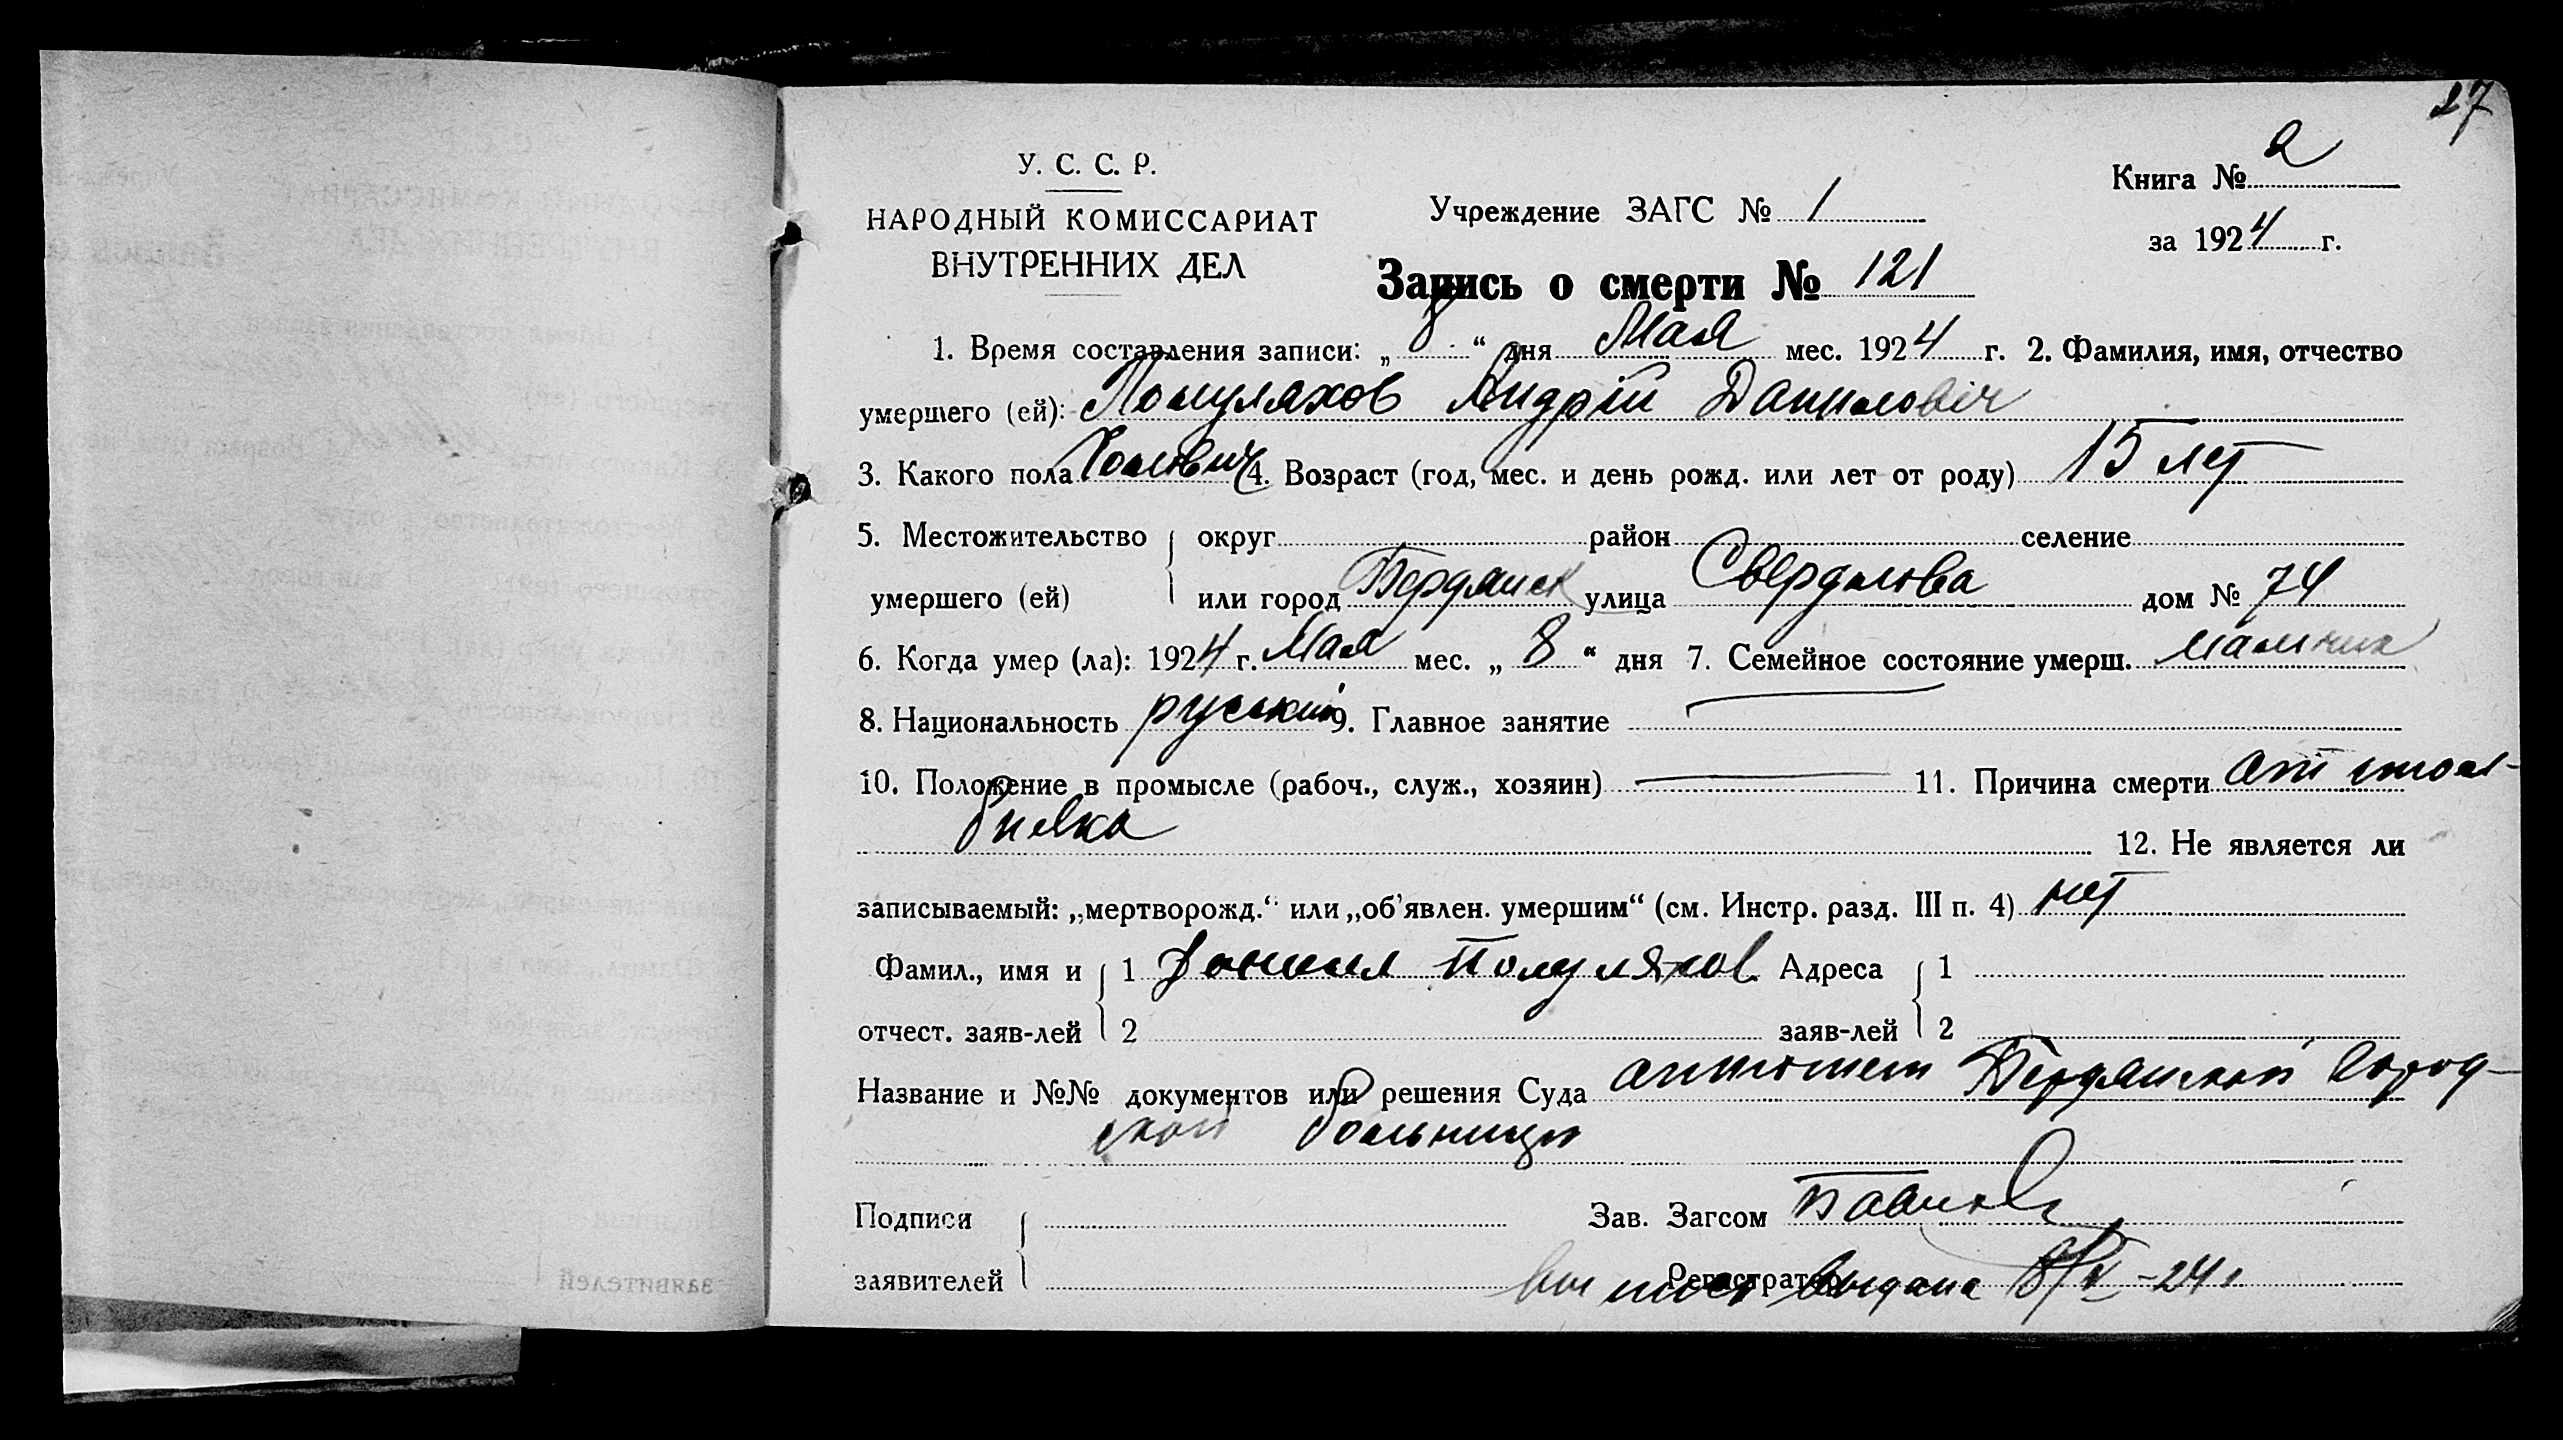 27
У. С. С. Р.
НАРОДНЫЙ КОМИССАРИАТ
ВНУТРЕННИХ ДЕЛ
Учреждение ЗАГС № 1
Книга № 2
за 1924 г.
Запись о смерти № 121
1. Время составления записи: „ 8 “ дня Мая мес. 1924 г. 2. Фамилия, имя, отчество
умершего (ей): Полуляхов Андрій Даниловіч
3. Какого пола 4. Возраст (год, мес. и день рожд. или лет от роду) 15 лет
5. Местожительство округ район селение
умершего (ей) или город Бердянск улица Свердлова дом № 74
6. Когда умер (ла): 1924 г. Мая мес. „ 8 “ дня 7. Семейное состояние умерш.
8. Национальность руский 9. Главное занятие
10. Положение в промысле (рабоч., служ., хозяин) 11. Причина смерти от столбняка
12. Не является ли
записываемый: „мертворожд.“ или „об'явлен. умершим“ (см. Инстр. разд. III п. 4) нет
Фамил., имя и 1 Даниил Полуляхов Адреса 1
отчест. заяв-лей 2 заяв-лей 2
Название и №№ документов или решения Суда Бердянской город-
ской больницы
Подписи Зав. Загсом
заявителей Регистратор выдана 8/V-24 г